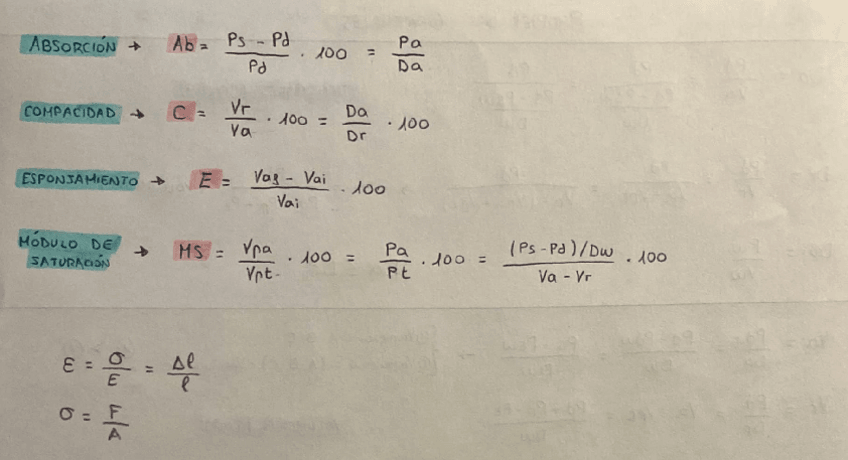 ABSORCIÓN → Ab = (Ps - Pd) / Pd · 100 = Pa / Da
COMPACIDAD → C = Vr / Va · 100 = Da / Dr · 100
ESPONJAMIENTO → E = (Vaf - Vai) / Vai · 100
MÓDULO DE SATURACIÓN → MS = Vpa / Vpt · 100 = Pa / Pt · 100 = (Ps - Pd) / Dw / (Va - Vr) · 100
ε = σ / E = Δl / l
σ = F / A